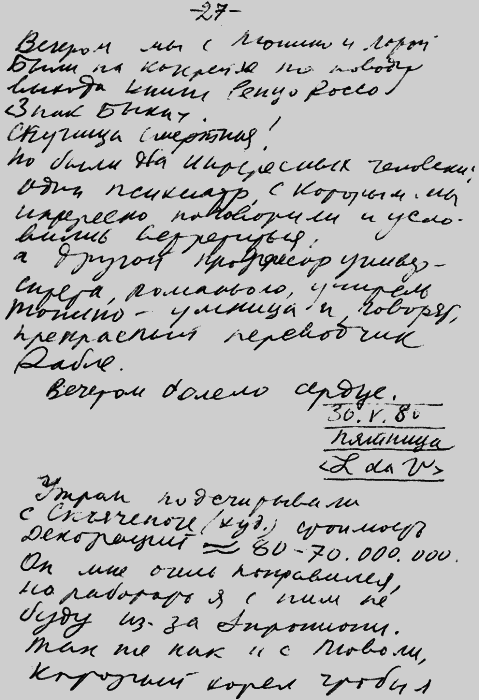 -27-
Вечером мы с Тонино и Лорой
были на конгрессе по поводу
выхода книги Ренцо Россо
<Знак Быка>.
Скучища смертная!
Но были два интересных человека:
один психиатр, с которым мы
интересно поговорили и усло-
вились встретиться.
а другой профессор универ-
ситета, романького, учитель
Тонино - умница и, говорят,
прекрасный переводчик
Рабле.
Вечером болело сердце.
30.V.80
пятница
<L da V>
Утром подсчитывали
с (худ.) стоимость
декораций ≈ 60-70.000.000.
Он мне очень понравился,
но работать я с ним не
буду из-за
Так же как и с
который хотел